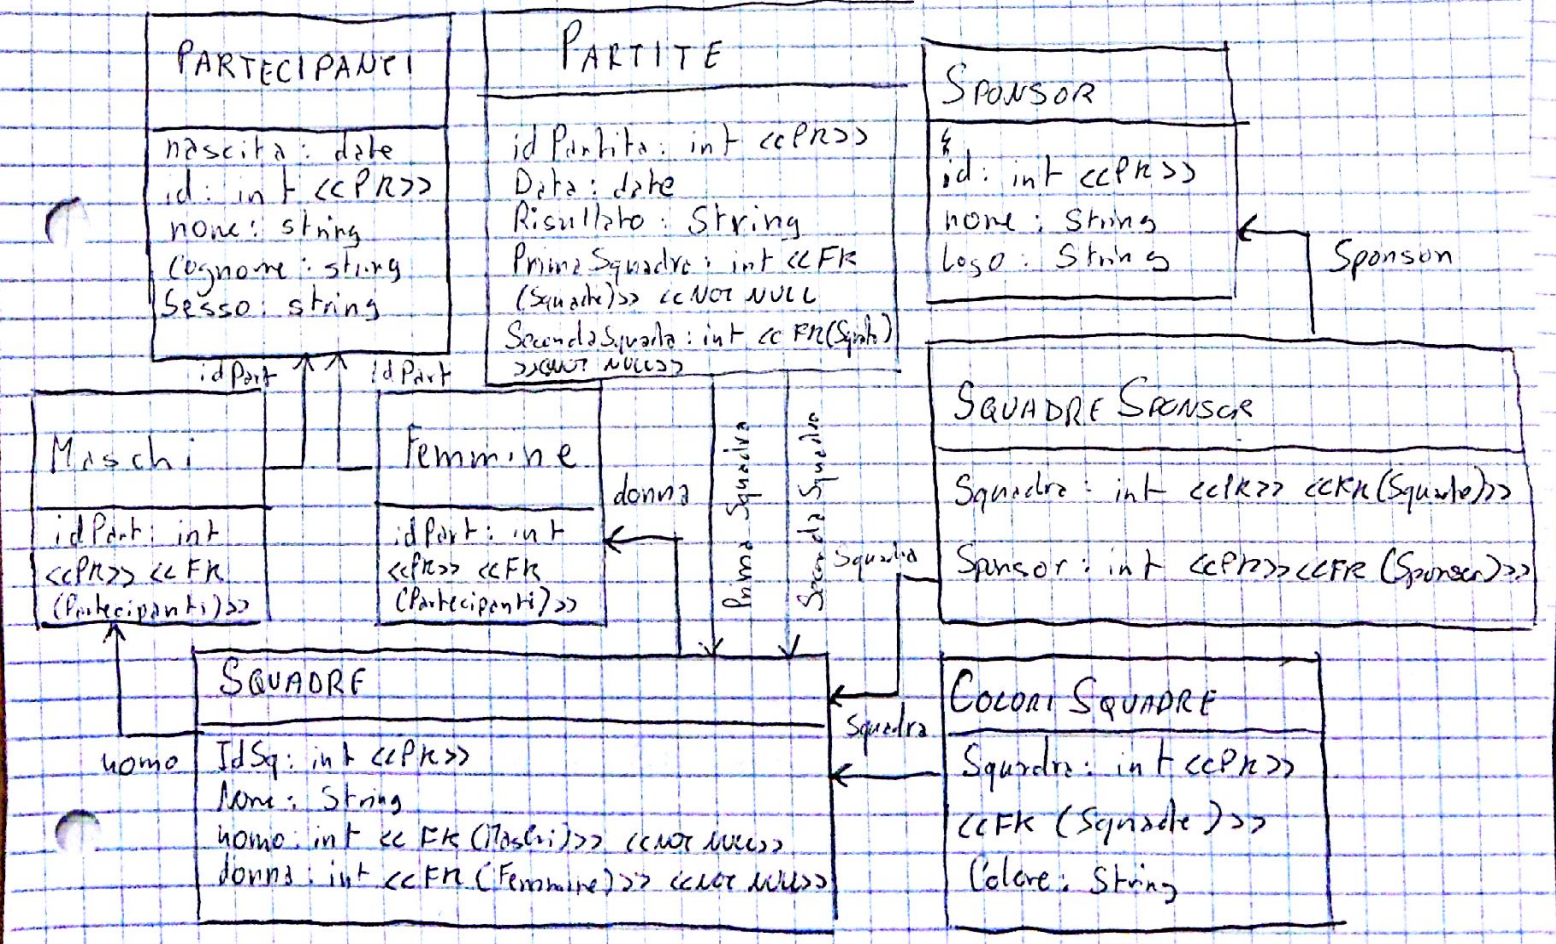 PARTECIPANTI
nascita: date
id: int <<PK>>
nome: string
Cognome: string
Sesso: string
PARTITE
idPartita: int <<PK>>
Data: date
Risultato: String
PrimaSquadra: int <<FK
(Squadre)>> <<NOT NULL
SecondaSquadra: int <<FK(Squadre)
>> <<NOT NULL>>
SPONSOR
id: int <<PK>>
nome: String
Logo: String
Sponsor
idPart
idPart
Maschi
idPart: int
<<PK>> <<FK
(Partecipanti)>>
Femmine
idPart: int
<<PK>> <<FK
(Partecipanti)>>
donna
Prima Squadra
Seconda Squadra
SQUADRE SPONSOR
Squadra: int <<PK>> <<FK(Squadre)>>
Sponsor: int <<PK>> <<FK (Sponsor)>>
Squadra
uomo
SQUADRE
IdSq: int <<PK>>
Nome: String
uomo: int <<FK(Maschi)>> <<NOT NULL>>
donna: int <<FK (Femmine)>> <<NOT NULL>>
Squadra
COLORI SQUADRE
Squadra: int <<PK>>
<<FK (Squadre)>>
Colore: String